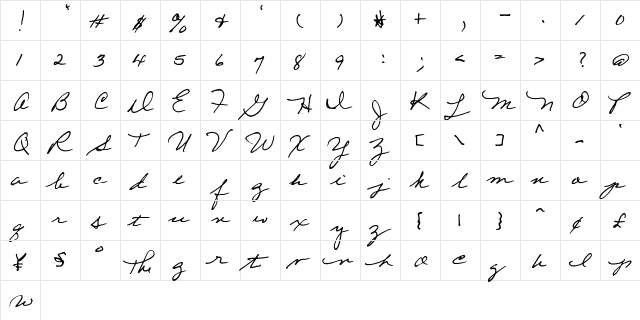 ! " # $ % & ' ( ) * + , - . / 0
1 2 3 4 5 6 7 8 9 : ; < = > ? @
A B C D E F G H I J K L M N O P
Q R S T U V W X Y Z [ \ ] ^ _ `
a b c d e f g h i j k l m n o p
q r s t u v w x y z { | } ~ ¢ £
¥ § ° The g r t r n h o e g h l p
w